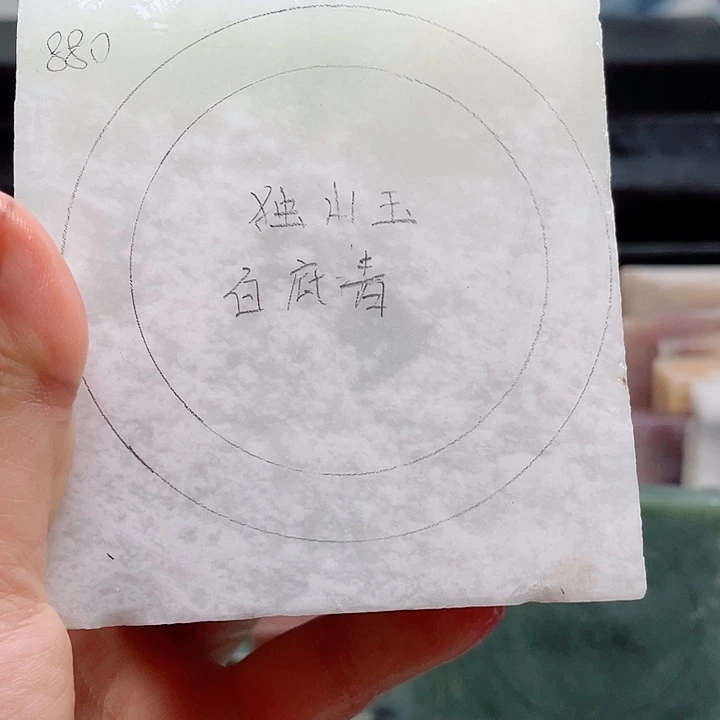 880
独山玉
白底青